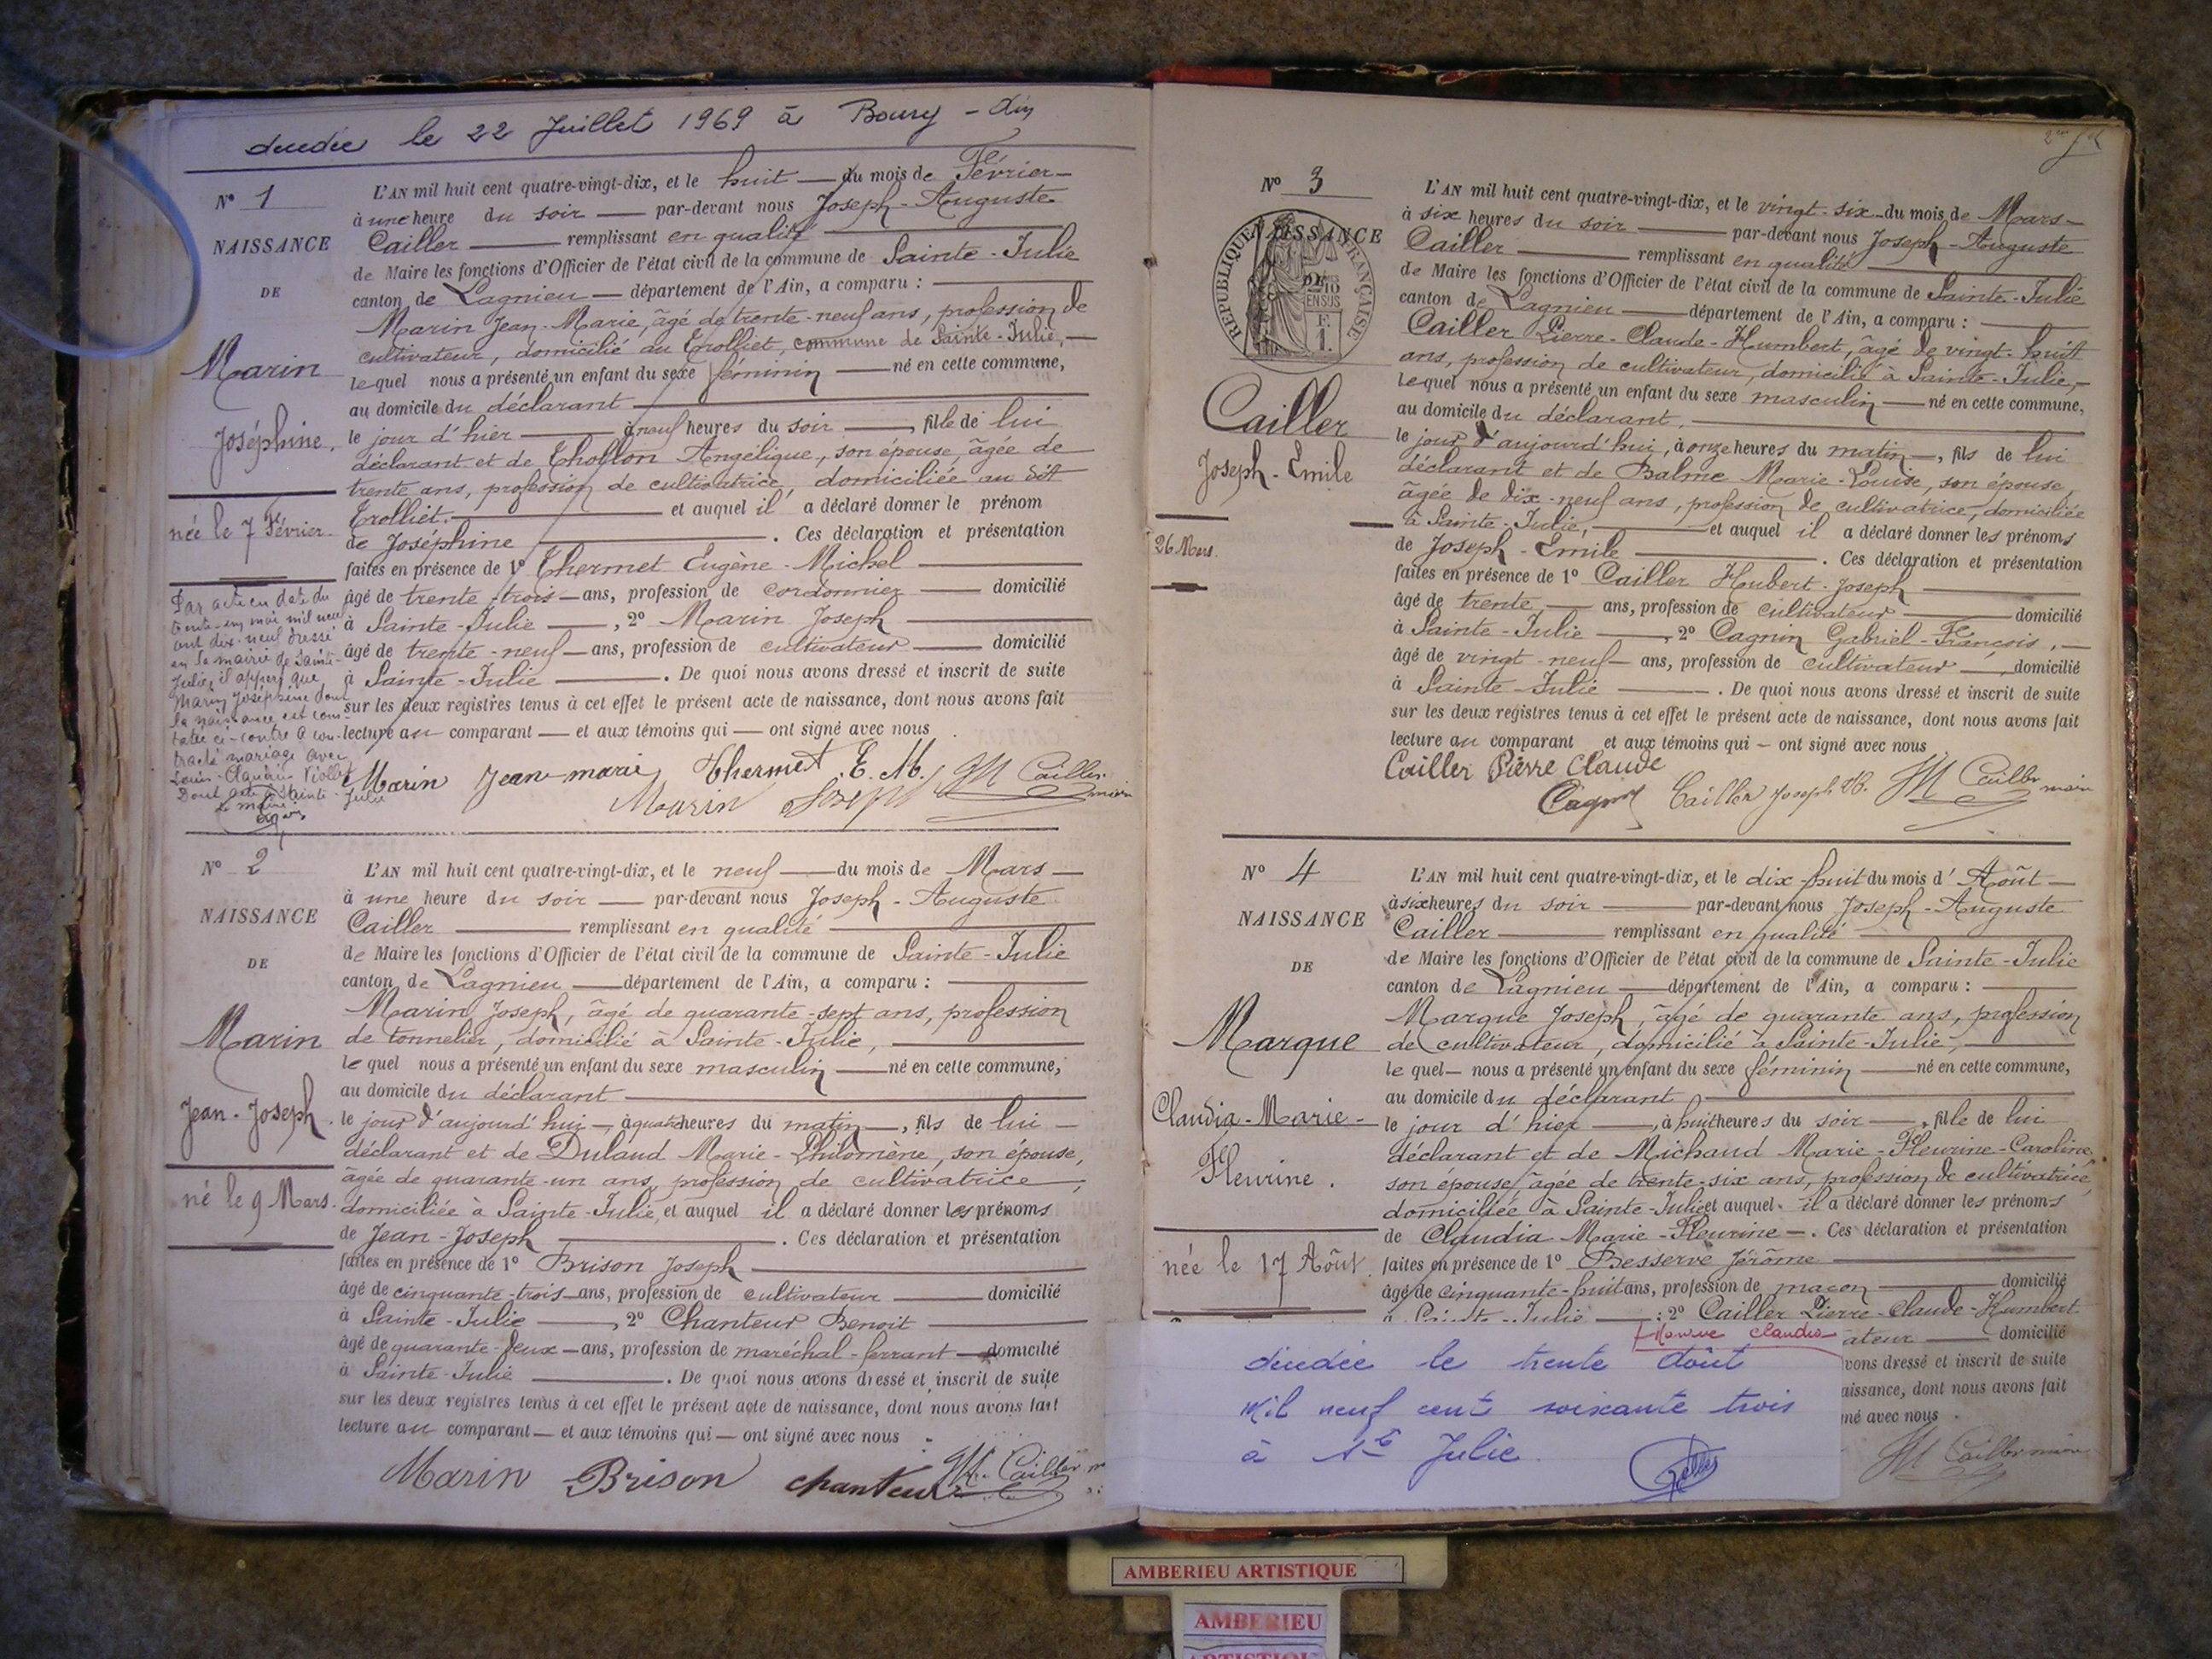 décédée le 22 Juillet 1969 à Bourg - Ain
N° 1
NAISSANCE
DE
Marin
Joséphine.
née le 7 Février.
Par acte en date du
trente-un mai mil neuf
cent dix-neuf dressé
en la mairie de Sainte-
Julie, il appert que
Marin Joséphine dont
la naissance est cons-
tatée ci-contre a con-
tracté mariage avec
Louis-Claudius Viollet
Dont acte à Sainte-Julie
Le maire
L'AN mil huit cent quatre-vingt-dix, et le huit du mois de Février
à une heure du soir par-devant nous Joseph-Auguste
Cailler remplissant en qualité
de Maire les fonctions d'Officier de l'état civil de la commune de Sainte-Julie
canton de Lagnieu département de l'Ain, a comparu :
Marin Jean-Marie, âgé de trente-neuf ans, profession de
cultivateur, domicilié au Trolliet, commune de Sainte-Julie,
lequel nous a présenté un enfant du sexe féminin né en cette commune,
au domicile du déclarant
le jour d'hier à neuf heures du soir, fille de lui
déclarant et de Thollon Angélique, son épouse, âgée de
trente ans, profession de cultivatrice, domiciliée au dit
Trolliet. et auquel il a déclaré donner le prénom
de Joséphine . Ces déclaration et présentation
faites en présence de 1° Thermet Eugène-Michel
âgé de trente-trois ans, profession de cordonnier domicilié
à Sainte-Julie, 2° Marin Joseph
âgé de trente-neuf ans, profession de cultivateur domicilié
à Sainte-Julie . De quoi nous avons dressé et inscrit de suite
sur les deux registres tenus à cet effet le présent acte de naissance, dont nous avons fait
lecture au comparant et aux témoins qui ont signé avec nous
Marin Jean-marie Thermet E. M. Cailler maire
Marin Joseph
N° 2
NAISSANCE
DE
Marin
Jean-Joseph.
né le 9 Mars.
L'AN mil huit cent quatre-vingt-dix, et le neuf du mois de Mars
à une heure du soir par-devant nous Joseph-Auguste
Cailler remplissant en qualité
de Maire les fonctions d'Officier de l'état civil de la commune de Sainte-Julie
canton de Lagnieu département de l'Ain, a comparu :
Marin Joseph, âgé de quarante-sept ans, profession
de tonnelier, domicilié à Sainte-Julie,
lequel nous a présenté un enfant du sexe masculin né en cette commune,
au domicile du déclarant
le jour d'aujourd'hui, à quatre heures du matin, fils de lui
déclarant et de Dulaud Marie-Philomène, son épouse,
âgée de quarante-un ans, profession de cultivatrice,
domiciliée à Sainte-Julie, et auquel il a déclaré donner les prénoms
de Jean-Joseph . Ces déclaration et présentation
faites en présence de 1° Brison Joseph
âgé de cinquante-trois ans, profession de cultivateur domicilié
à Sainte-Julie, 2° Chanteur Benoit
âgé de quarante-deux ans, profession de maréchal-ferrant domicilié
à Sainte-Julie . De quoi nous avons dressé et inscrit de suite
sur les deux registres tenus à cet effet le présent acte de naissance, dont nous avons fait
lecture au comparant et aux témoins qui ont signé avec nous
Marin Brison chanteur Cailler
2me
N° 3
NAISSANCE
DE
RÉPUBLIQUE FRANÇAISE
Cailler
Joseph-Emile
26 Mars.
L'AN mil huit cent quatre-vingt-dix, et le vingt-six du mois de Mars
à six heures du soir par-devant nous Joseph-Auguste
Cailler remplissant en qualité
de Maire les fonctions d'Officier de l'état civil de la commune de Sainte-Julie
canton de Lagnieu département de l'Ain, a comparu :
Cailler Pierre-Claude-Humbert, âgé de vingt-huit
ans, profession de cultivateur, domicilié à Sainte-Julie,
lequel nous a présenté un enfant du sexe masculin né en cette commune,
au domicile du déclarant.
le jour d'aujourd'hui, à onze heures du matin, fils de lui
déclarant et de Balme Marie-Louise, son épouse,
âgée de dix-neuf ans, profession de cultivatrice, domiciliée
à Sainte-Julie, et auquel il a déclaré donner les prénoms
de Joseph-Emile . Ces déclaration et présentation
faites en présence de 1° Cailler Hubert-Joseph
âgé de trente ans, profession de cultivateur domicilié
à Sainte-Julie, 2° Cagnin Gabriel-François,
âgé de vingt-neuf ans, profession de cultivateur, domicilié
à Sainte-Julie . De quoi nous avons dressé et inscrit de suite
sur les deux registres tenus à cet effet le présent acte de naissance, dont nous avons fait
lecture au comparant et aux témoins qui ont signé avec nous
Cailler Pierre Claude
Cagnin Cailler Joseph Cailler maire
N° 4
NAISSANCE
DE
Marque
Claudia-Marie-
Fleurine.
née le 17 Août.
L'AN mil huit cent quatre-vingt-dix, et le dix-huit du mois d'Août
à six heures du soir par-devant nous Joseph-Auguste
Cailler remplissant en qualité
de Maire les fonctions d'Officier de l'état civil de la commune de Sainte-Julie
canton de Lagnieu département de l'Ain, a comparu :
Marque Joseph, âgé de quarante ans, profession
de cultivateur, domicilié à Sainte-Julie,
lequel nous a présenté un enfant du sexe féminin né en cette commune,
au domicile du déclarant
le jour d'hier, à huit heures du soir, fille de lui
déclarant et de Michaud Marie-Fleurine-Caroline,
son épouse, âgée de trente-six ans, profession de cultivatrice,
domiciliée à Sainte-Julie et auquel il a déclaré donner les prénoms
de Claudia Marie-Fleurine. Ces déclaration et présentation
faites en présence de 1° Besserve Jérôme
âgé de cinquante-huit ans, profession de maçon domicilié
à Sainte-Julie ; 2° Cailler Pierre-Claude-Humbert
ateur domicilié
vons dressé et inscrit de suite
aissance, dont nous avons fait
né avec nous.
Cailler maire
Marque Claudia
décédée le trente Août
Mil neuf cent soixante trois
à Ste Julie
AMBERIEU ARTISTIQUE
AMBERIEU
ARTISTIQUE